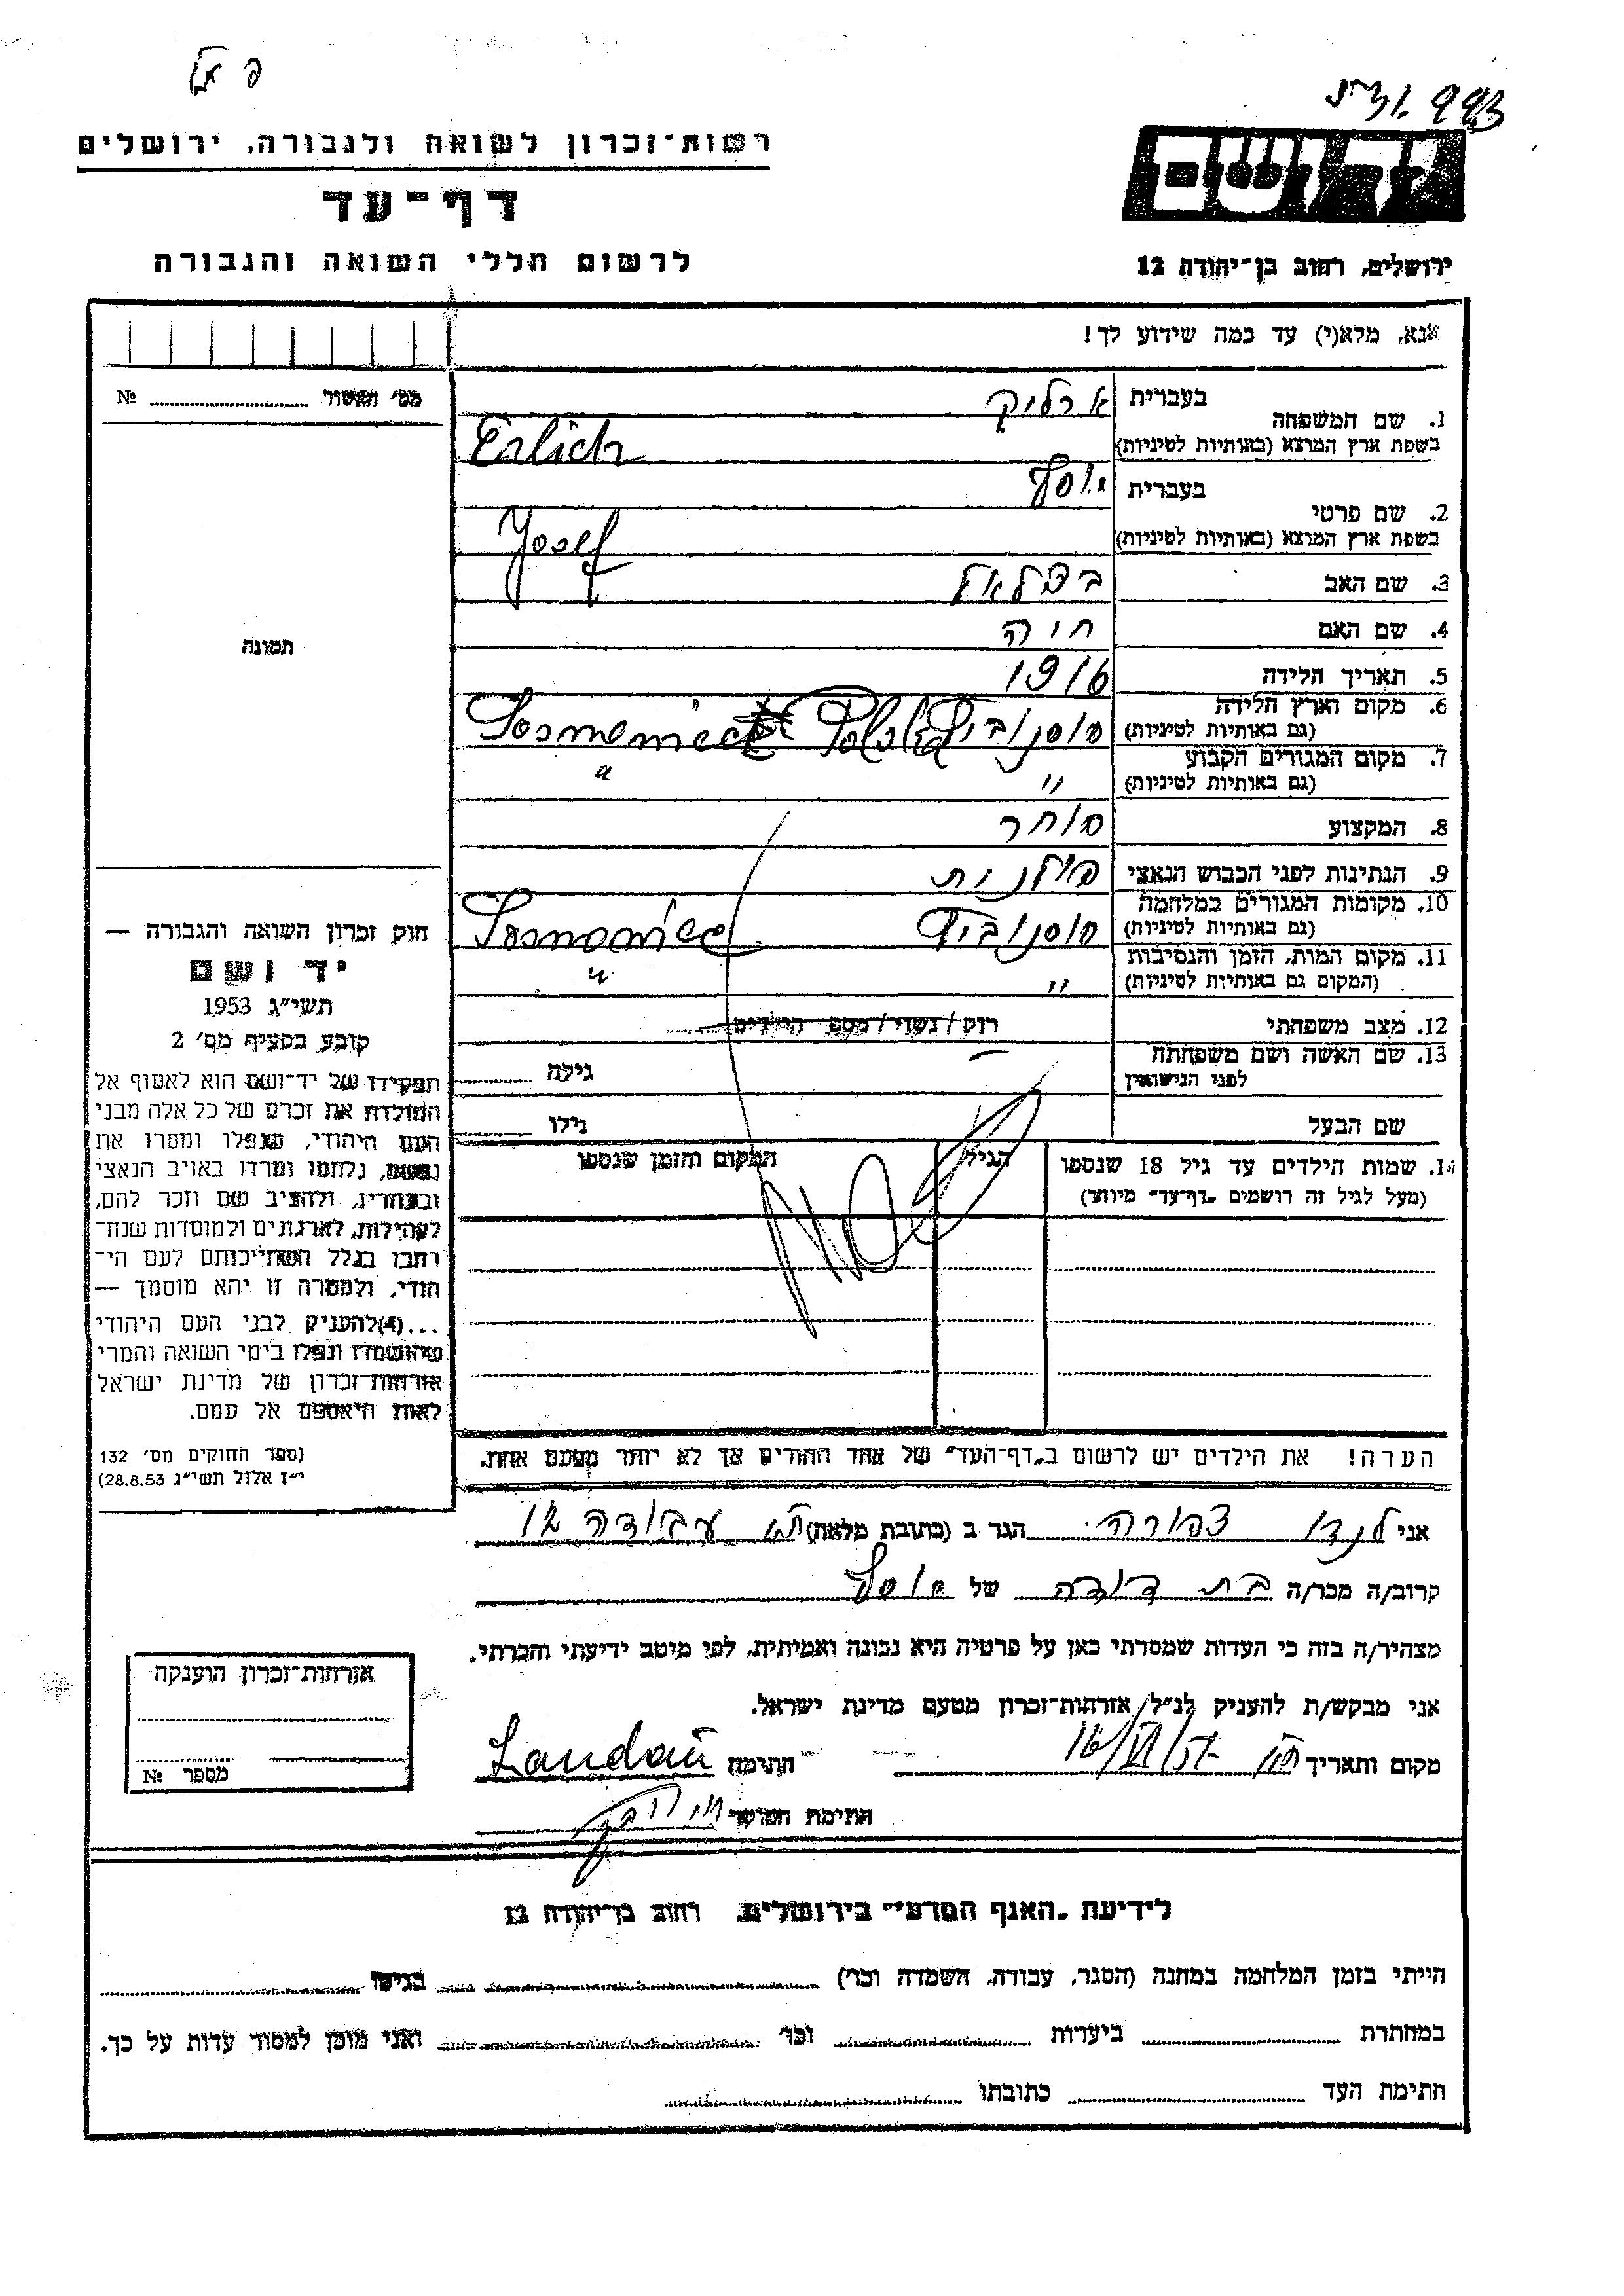 רשות-זכרון לשואה ולגבורה, ירושלים
דף-עד
לרשום חללי השואה והגבורה
יד ושם
ירושלים, רחוב בן-יהודה 12
אנא, מלא(י) עד כמה שידוע לך!
1. שם המשפחה
בעברית ארליך
בשפת ארץ המוצא (באותיות לטיניות) Erlich
2. שם פרטי
בעברית יוסף
בשפת ארץ המוצא (באותיות לטיניות) Josef
3. שם האב בצלאל
4. שם האם חיה
5. תאריך הלידה 1916
6. מקום וארץ הלידה
(גם באותיות לטיניות) סוסנוביץ Polska
7. מקום המגורים הקבוע
(גם באותיות לטיניות) " "
8. המקצוע סוחר
9. הנתינות לפני הכבוש הנאצי פולנית
10. מקומות המגורים במלחמה
(גם באותיות לטיניות) סוסנוביץ Sosnowiec
11. מקום המות, הזמן והנסיבות
(המקום גם באותיות לטיניות) " "
12. מצב משפחתי רוק/נשוי/מספר הילדים
13. שם האשה ושם משפחתה
לפני הנישואין גילה
שם הבעל גילו
14. שמות הילדים עד גיל 18 שנספו הגיל המקום והזמן שנספו
(מעל לגיל זה רושמים "דף-עד" מיוחד)
הערה! את הילדים יש לרשום ב"דף-העד" של אחד ההורים אך לא יותר מפעם אחת.
№ מס' תאשור
תמונה
חוק זכרון השואה והגבורה —
יד ושם
תשי"ג 1953
קובע בסעיף מס' 2
תפקידו של יד-ושם הוא לאסוף אל
המולדת את זכרם של כל אלה מבני
העם היהודי, שנפלו ומסרו את
נפשם, נלחמו ומרדו באויב הנאצי
ובעוזריו, ולהציב שם וזכר להם,
לקהילות, לארגונים ולמוסדות שנח-
רבו בגלל השתייכותם לעם הי-
הודי, ולמטרה זו יהא מוסמך —
...(4)להעניק לבני העם היהודי
שהושמדו ונפלו בימי השואה והמרי
אזרחות-זכרון של מדינת ישראל
לאות היאספם אל עמם.
(ספר החוקים מס' 132
י"ז אלול תשי"ג 28.8.53)
אני לנדו צפורה הגר ב (כתובת מלאה) ת"א עבודה 12
קרוב/ה מכר/ה בת דודה של יוסף
מצהיר/ה בזה כי העדות שמסרתי כאן על פרטיה היא נכונה ואמיתית, לפי מיטב ידיעתי והכרתי.
אני מבקש/ת להעניק לנ"ל אזרחות-זכרון מטעם מדינת ישראל.
מקום ותאריך חתימה Landau
חתימת הפוקד
אזרחות-זכרון הוענקה
מספר №
לידיעת "האגף המדעי" בירושלים, רחוב בן-יהודה 12
הייתי בזמן המלחמה במחנה (הסגר, עבודה, השמדה וכו') בגיטו
במחתרת ביערות וכו' ואני מוכן למסור עדות על כך.
חתימת העד כתובתו